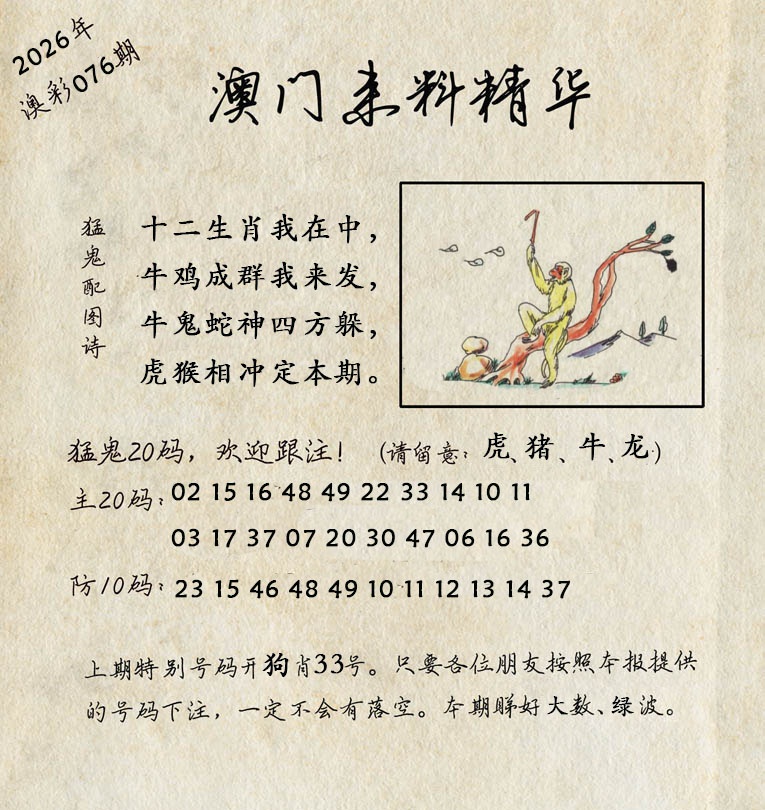 2026年
澳彩076期
澳门来料精华
猛鬼配图诗
十二生肖我在中，
牛鸡成群我来发，
牛鬼蛇神四方躲，
虎猴相冲定本期。
猛鬼20码，欢迎跟注！（请留意：虎、猪、牛、龙）
主20码：02 15 16 48 49 22 33 14 10 11
03 17 37 07 20 30 47 06 16 36
防10码：23 15 46 48 49 10 11 12 13 14 37
上期特别号码开狗肖33号。只要各位朋友按照本报提供
的号码下注，一定不会有落空。本期睇好大数、绿波。